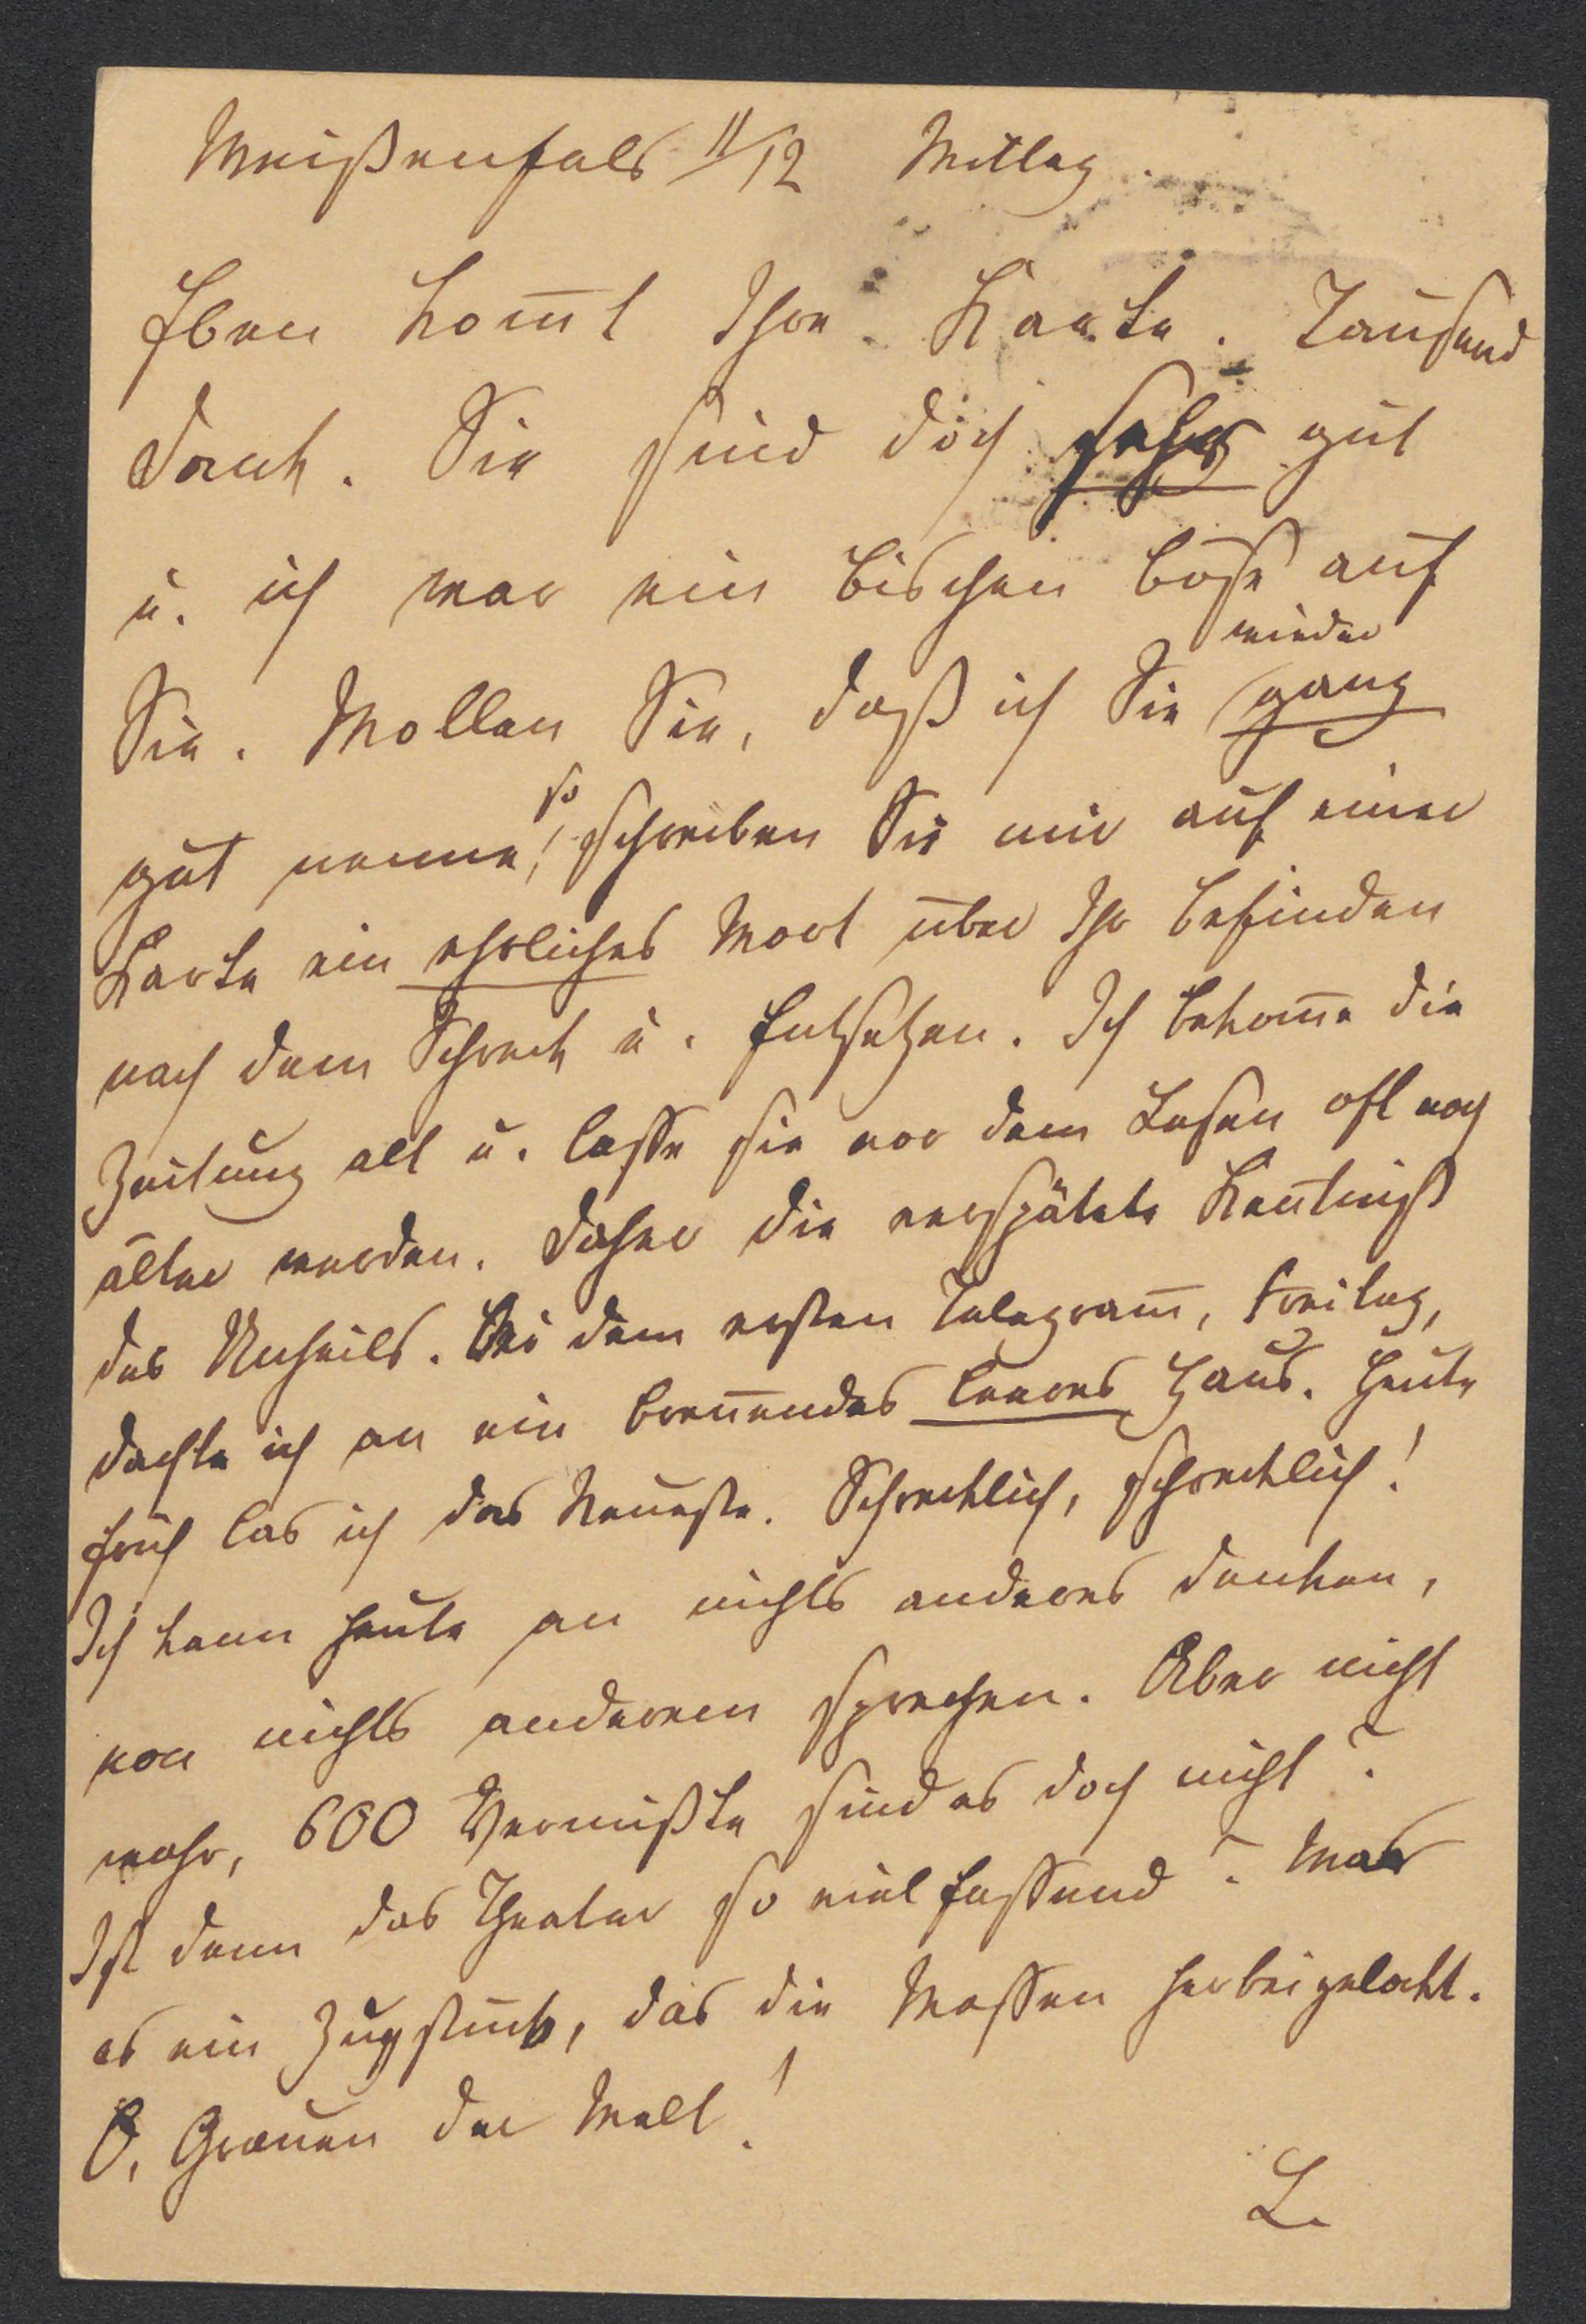 Weißenfels 11/12 Mittag.
Eben kom̄t Ihre Karte. Tausend
Dank. Sie sind doch sehr gut
u. ich war ein bischen böse auf
wieder
Sie. Wollen Sie, daß ich Sie ganz
so
gut nenne, schreiben Sie mir auf einer
Karte ein ehrliches Wort über Ihr Befinden
nach dem Schreck u. Entsetzen. Ich bekom̄e die
Zeitung alt u. lasse sie vor dem Lesen oft noch
älter werden. Daher die verspätete Ken̄tniß
des Unheils. Bei dem ersten Telegram̄, Freitag,
dachte ich an ein bren̄endes leeres Haus. Heute
früh las ich das Neueste. Schrecklich, schrecklich!
Ich kann heute an nichts anderes denken,
von nichts anderem sprechen. Aber nicht
wahr, 600 Vermißte sind es doch nicht?
Ist denn das Theater so viel fassend? War
es ein Zugstück, das die Massen herbeigelockt.
O, Grauen der Welt!
L.